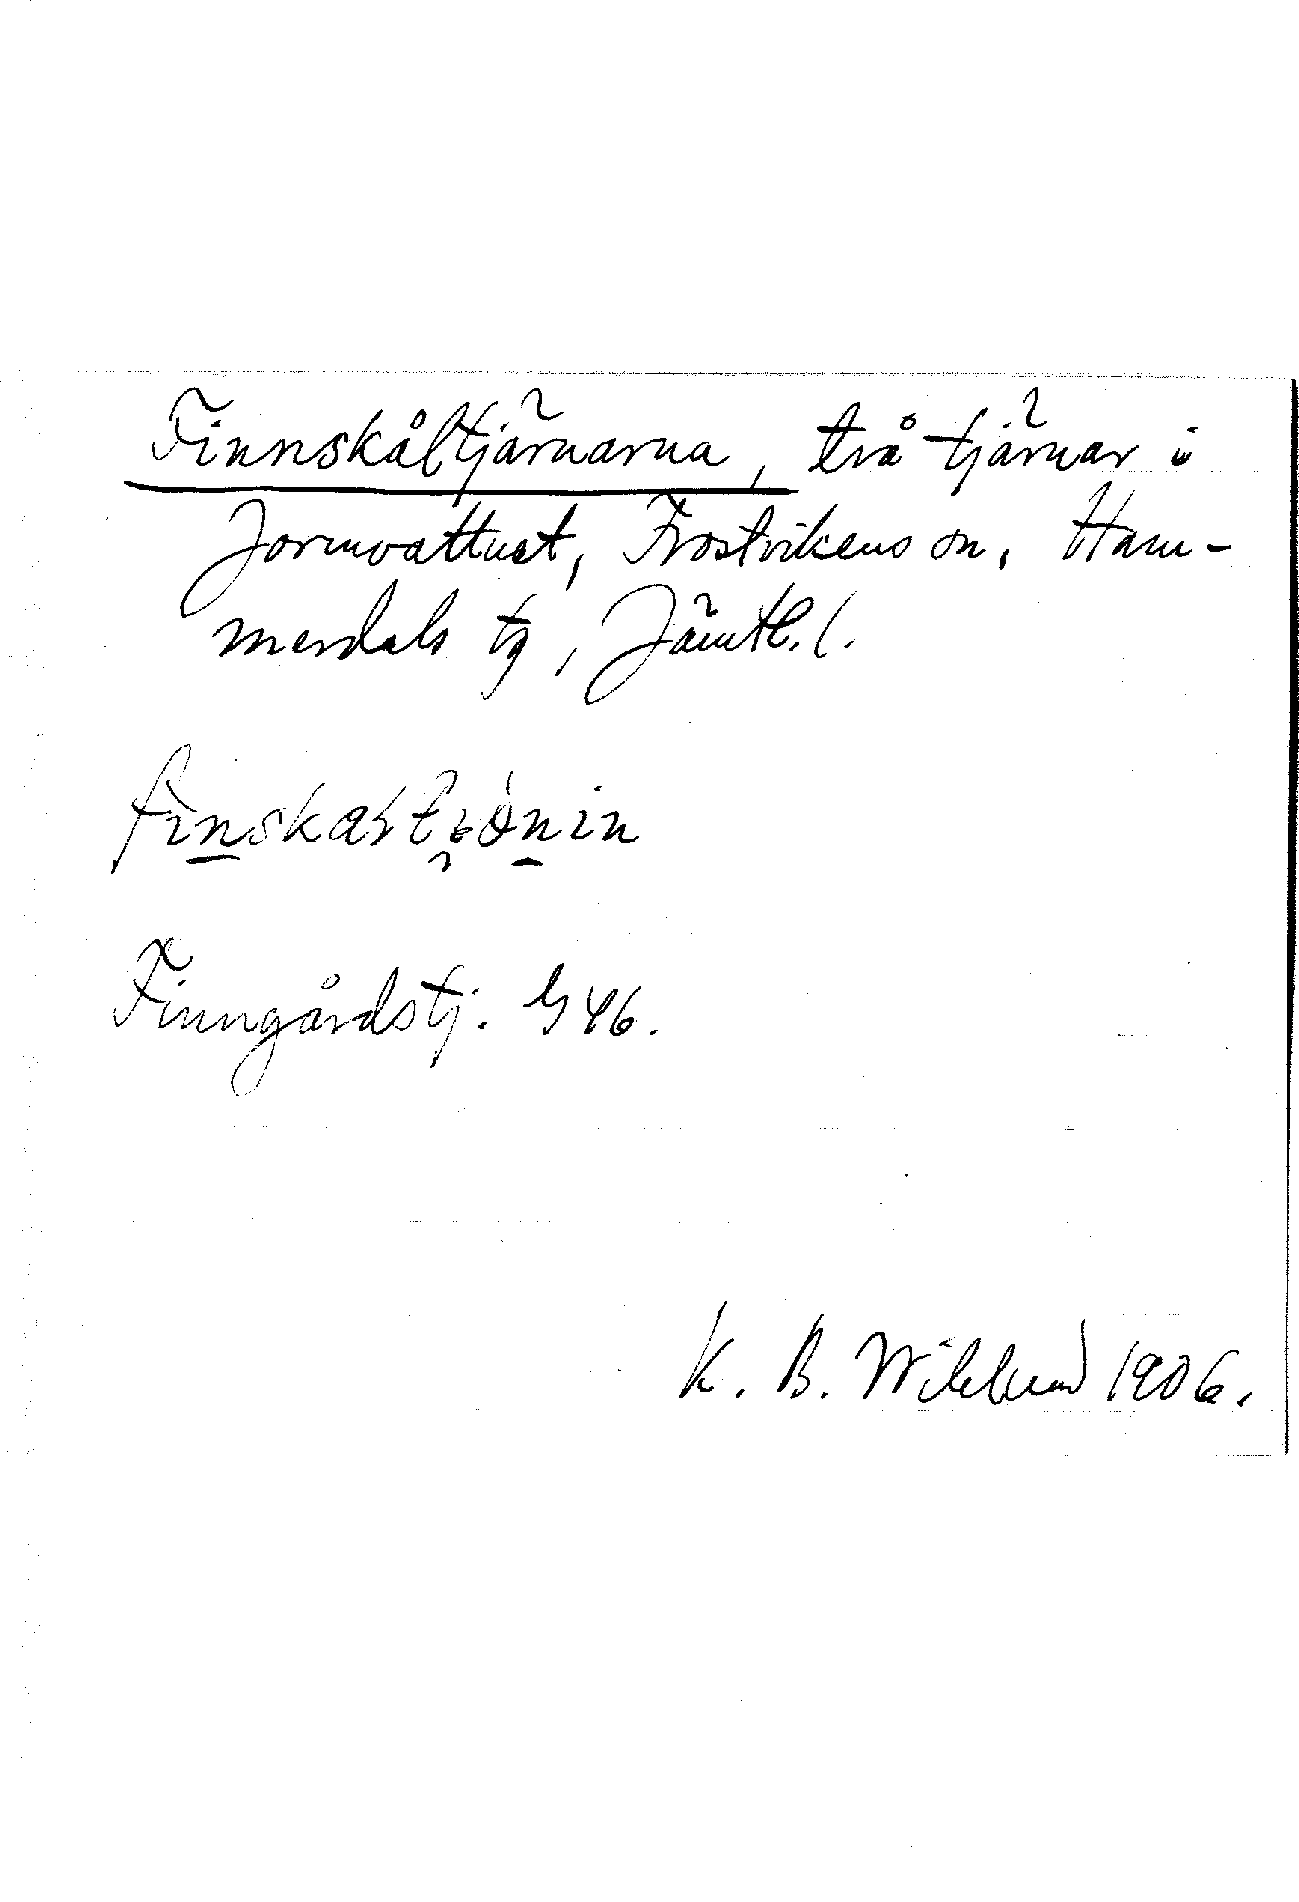 Finnskåltjärnarna, två tjärnar i
Jormvattnet, Frostvikens sn, Ham-
merdals tg, Jämtl. l.
Finngårdstj. G 46.
K. B. Wiklund 1906.